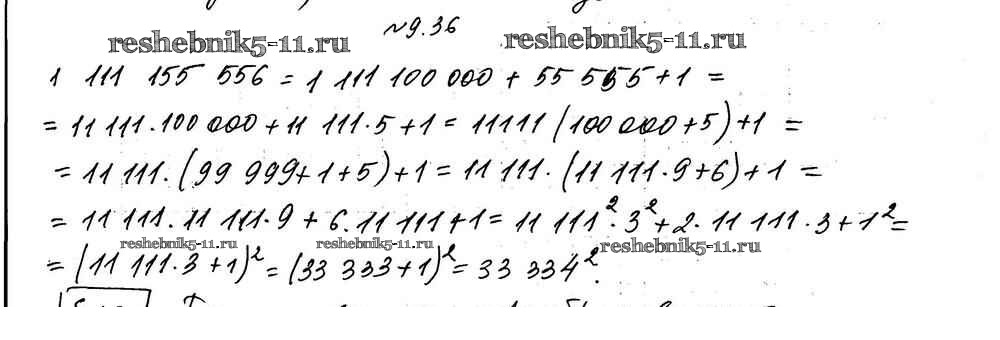 №9.36
reshebnik5-11.ru reshebnik5-11.ru
1 111 155 556 = 1 111 100 000 + 55 555 + 1 =
= 11 111 · 100 000 + 11 111 · 5 + 1 = 11111 (100 000 + 5) + 1 =
= 11 111 · (99 999 + 1 + 5) + 1 = 11 111 · (11 111 · 9 + 6) + 1 =
= 11 111 · 11 111 · 9 + 6 · 11 111 + 1 = 11 111² · 3² + 2 · 11 111 · 3 + 1² =
reshebnik5-11.ru reshebnik5-11.ru reshebnik5-11.ru
= (11 111 · 3 + 1)² = (33 333 + 1)² = 33 334².